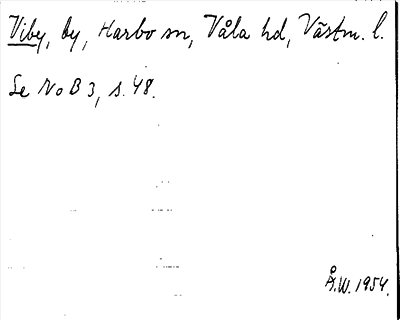 Viby, by, Harbo sn, Våla hd, Västm. l.
Se NoB 3, s. 48.
Å.W. 1954.